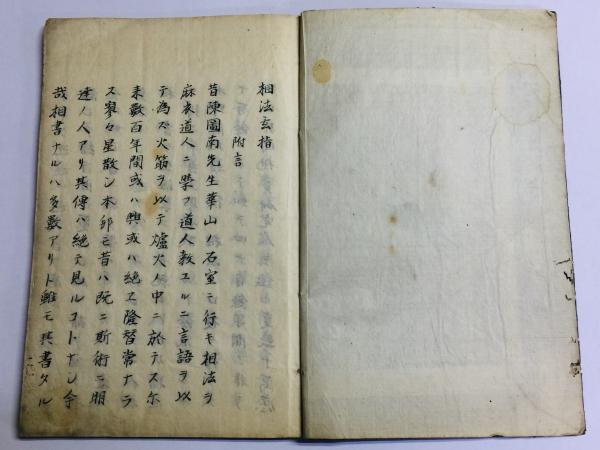 相法玄指
附言
昔陳圖南先生華山ノ石室ニ行キ相法ヲ
麻衣道人ニ學フ道人教エルニ言語ヲ以
テ為ズ火筋ヲ以テ爐火ノ中ニ於テス尓
来數百年間或ハ興或ハ絶エ隆替常ナラ
ス寥々星散シ本邦モ昔ハ既ニ斯術ニ明
達ノ人アリ其傳ハ絶テ見ルコトナシ今
哉相書ナルハ多數アリト雖モ其書タル